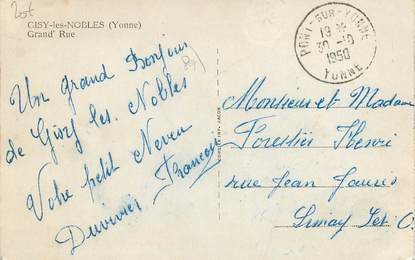 20f
GISY-les-NOBLES (Yonne)
Grand' Rue
PONT-SUR-YONNE
19 *
30-10
1950
YONNE
Un grand Bonjour
de Gisy les Nobles
Votre petit Neveu
Duvivier François
Monsieur et Madame
Forestier Henri
rue Jean Jaurès
Limay Set O.